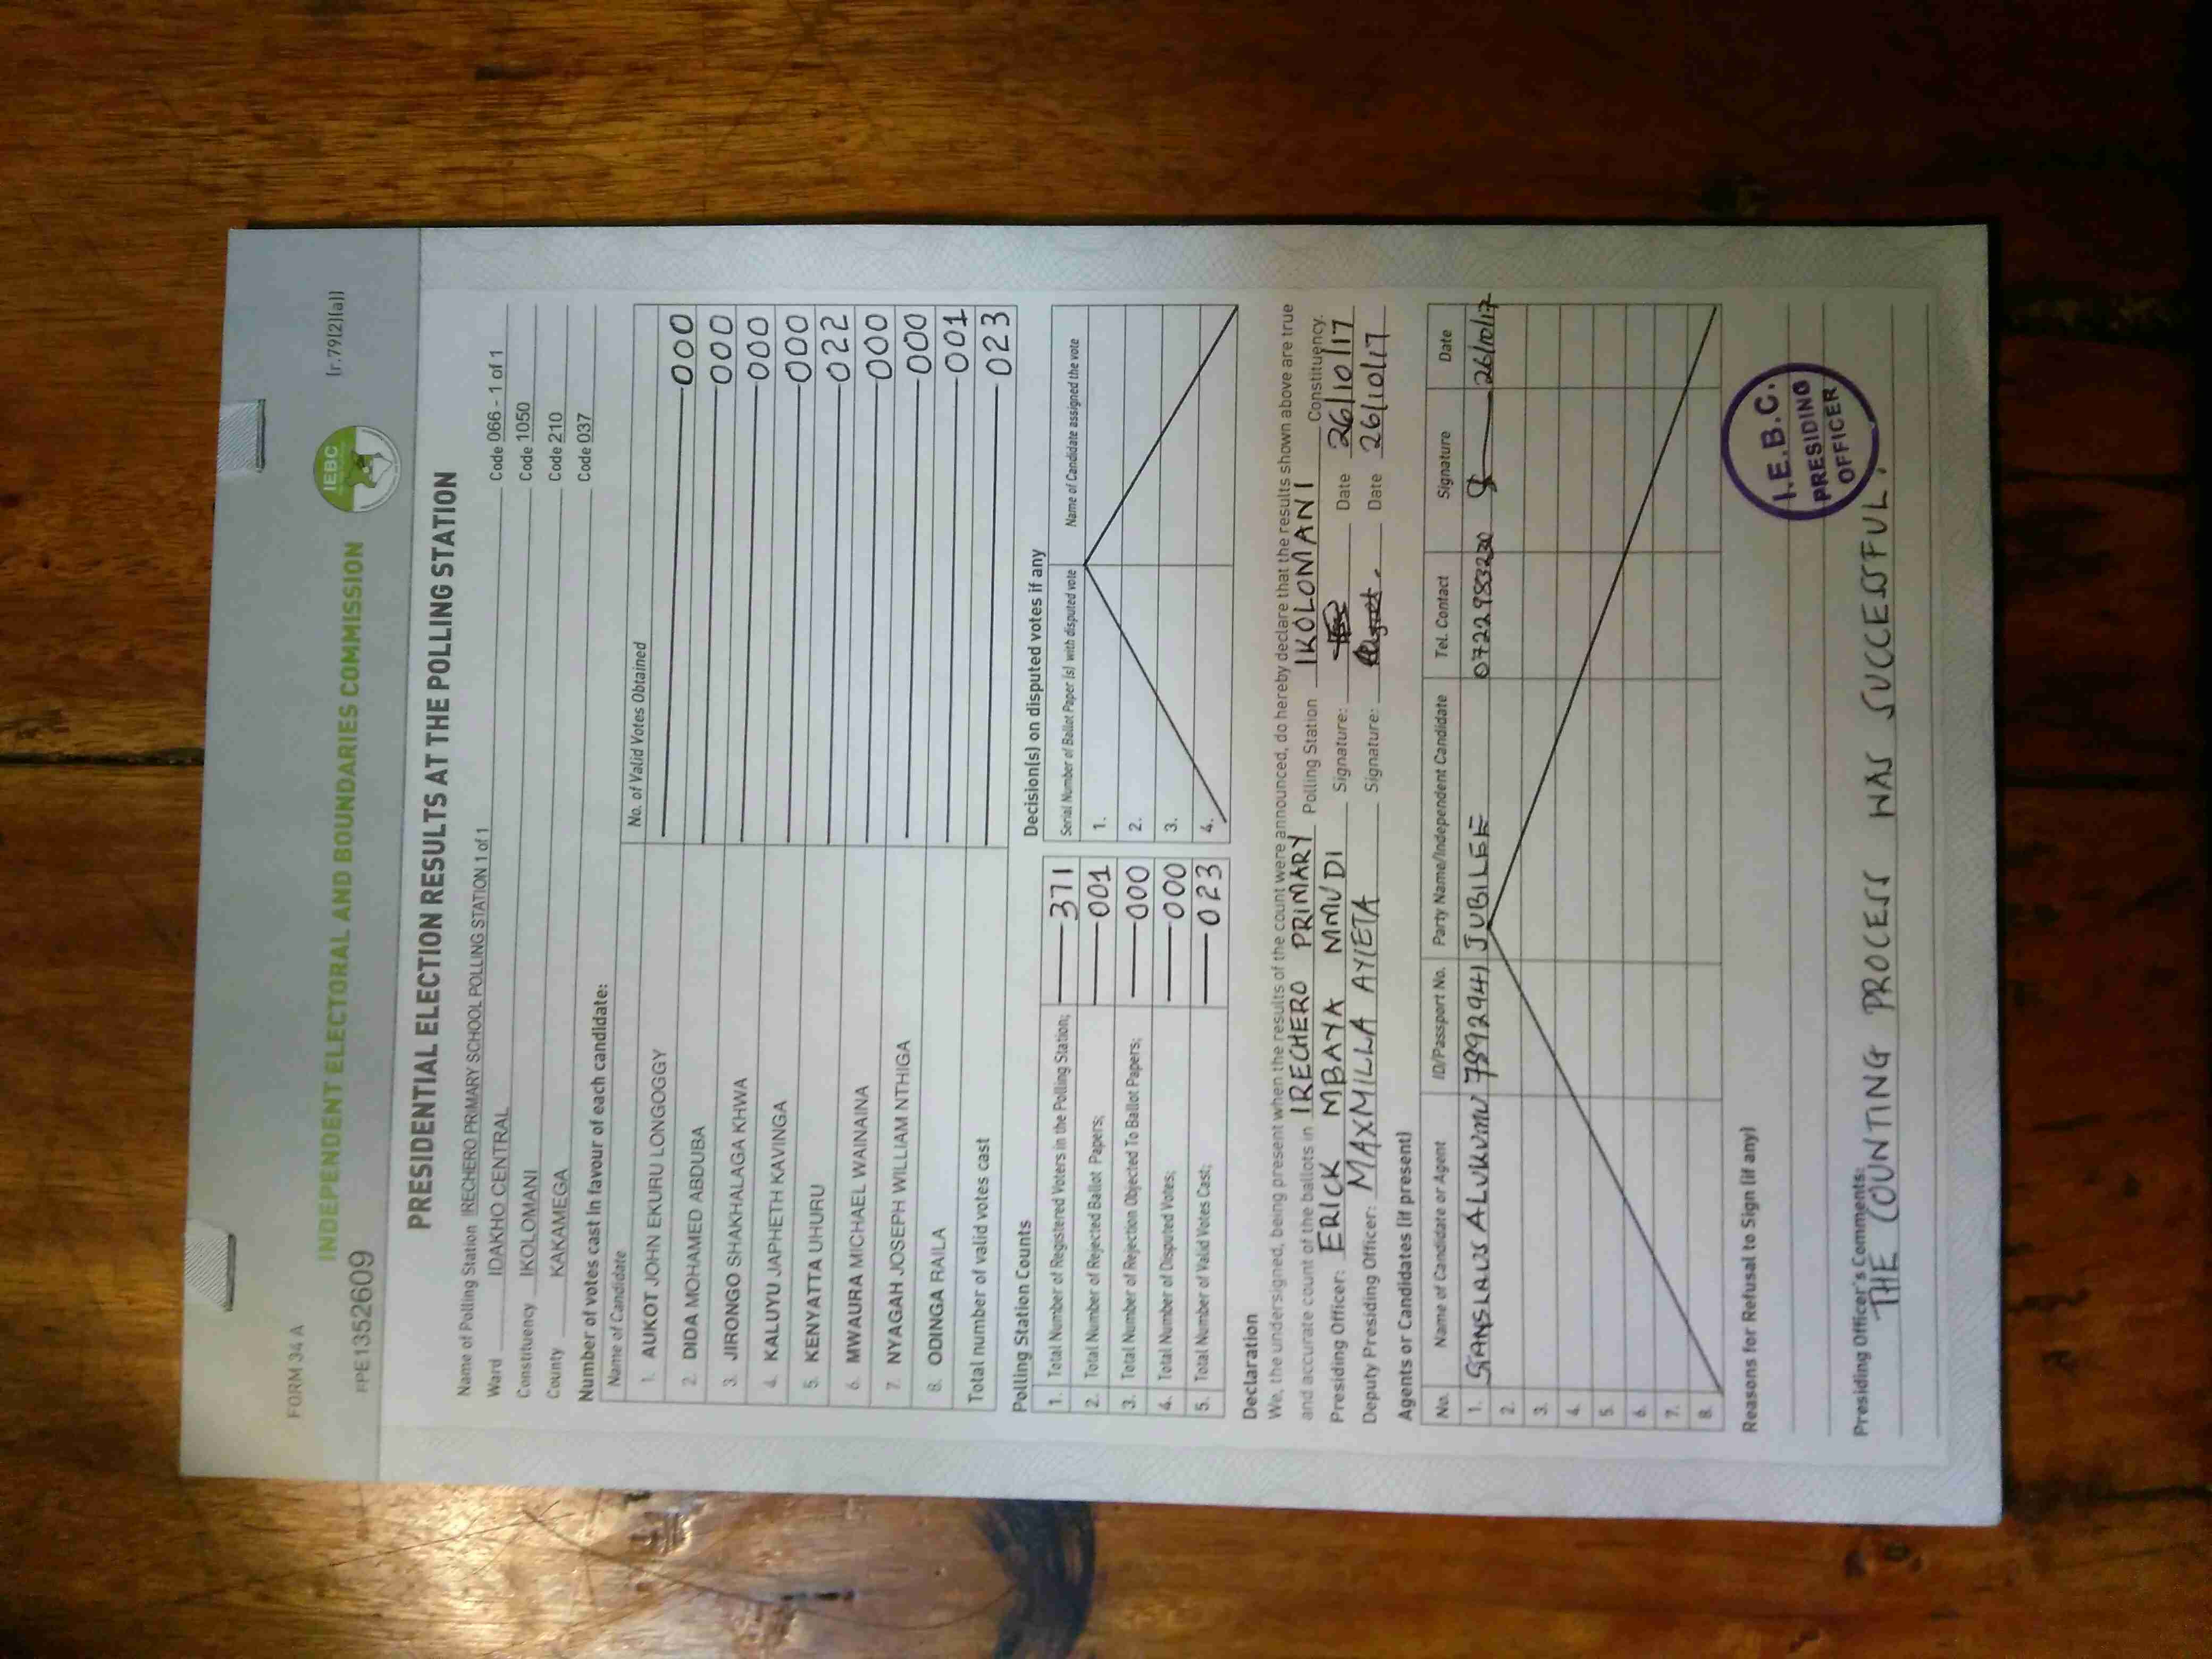 FORM 34 A
(r.79(2)(a))
IEBC
INDEPENDENT ELECTORAL AND BOUNDARIES COMMISSION
PPE1352609
PRESIDENTIAL ELECTION RESULTS AT THE POLLING STATION
Name of Polling Station IRECHERO PRIMARY SCHOOL POLLING STATION 1 of 1 Code 066 - 1 of 1
Ward IDAKHO CENTRAL Code 1050
Constituency IKOLOMANI Code 210
County KAKAMEGA Code 037
Number of votes cast in favour of each candidate:
Name of Candidate No. of Valid Votes Obtained
1. AUKOT JOHN EKURU LONGOGGY 000
2. DIDA MOHAMED ABDUBA 000
3. JIRONGO SHAKHALAGA KHWA 000
4. KALUYU JAPHETH KAVINGA 000
5. KENYATTA UHURU 022
6. MWAURA MICHAEL WAINAINA 000
7. NYAGAH JOSEPH WILLIAM NTHIGA 000
8. ODINGA RAILA 001
Total number of valid votes cast 023
Polling Station Counts
1. Total Number of Registered Voters in the Polling Station; 371
2. Total Number of Rejected Ballot Papers; 001
3. Total Number of Rejection Objected To Ballot Papers; 000
4. Total Number of Disputed Votes; 000
5. Total Number of Valid Votes Cast; 023
Decision(s) on disputed votes if any
Serial Number of Ballot Paper (s) with disputed vote Name of Candidate assigned the vote
1.
2.
3.
4.
Declaration
We, the undersigned, being present when the results of the count were announced, do hereby declare that the results shown above are true
and accurate count of the ballots in IRECHERO PRIMARY Polling Station IKOLOMANI Constituency.
Presiding Officer: ERICK MBAYA MMUDI Signature: Date 26/10/17
Deputy Presiding Officer: MAXMILLA AYIETA Signature: Date 26/10/17
Agents or Candidates (if present)
No. Name of Candidate or Agent ID/Passport No. Party Name/Independent Candidate Tel. Contact Signature Date
1. JUBILEE 0722983230 26/10/17
2.
3.
4.
5.
6.
7.
8.
Reasons for Refusal to Sign (if any)
I.E.B.C.
PRESIDING
OFFICER
Presiding Officer's Comments:
THE COUNTING PROCESS WAS SUCCESSFUL.